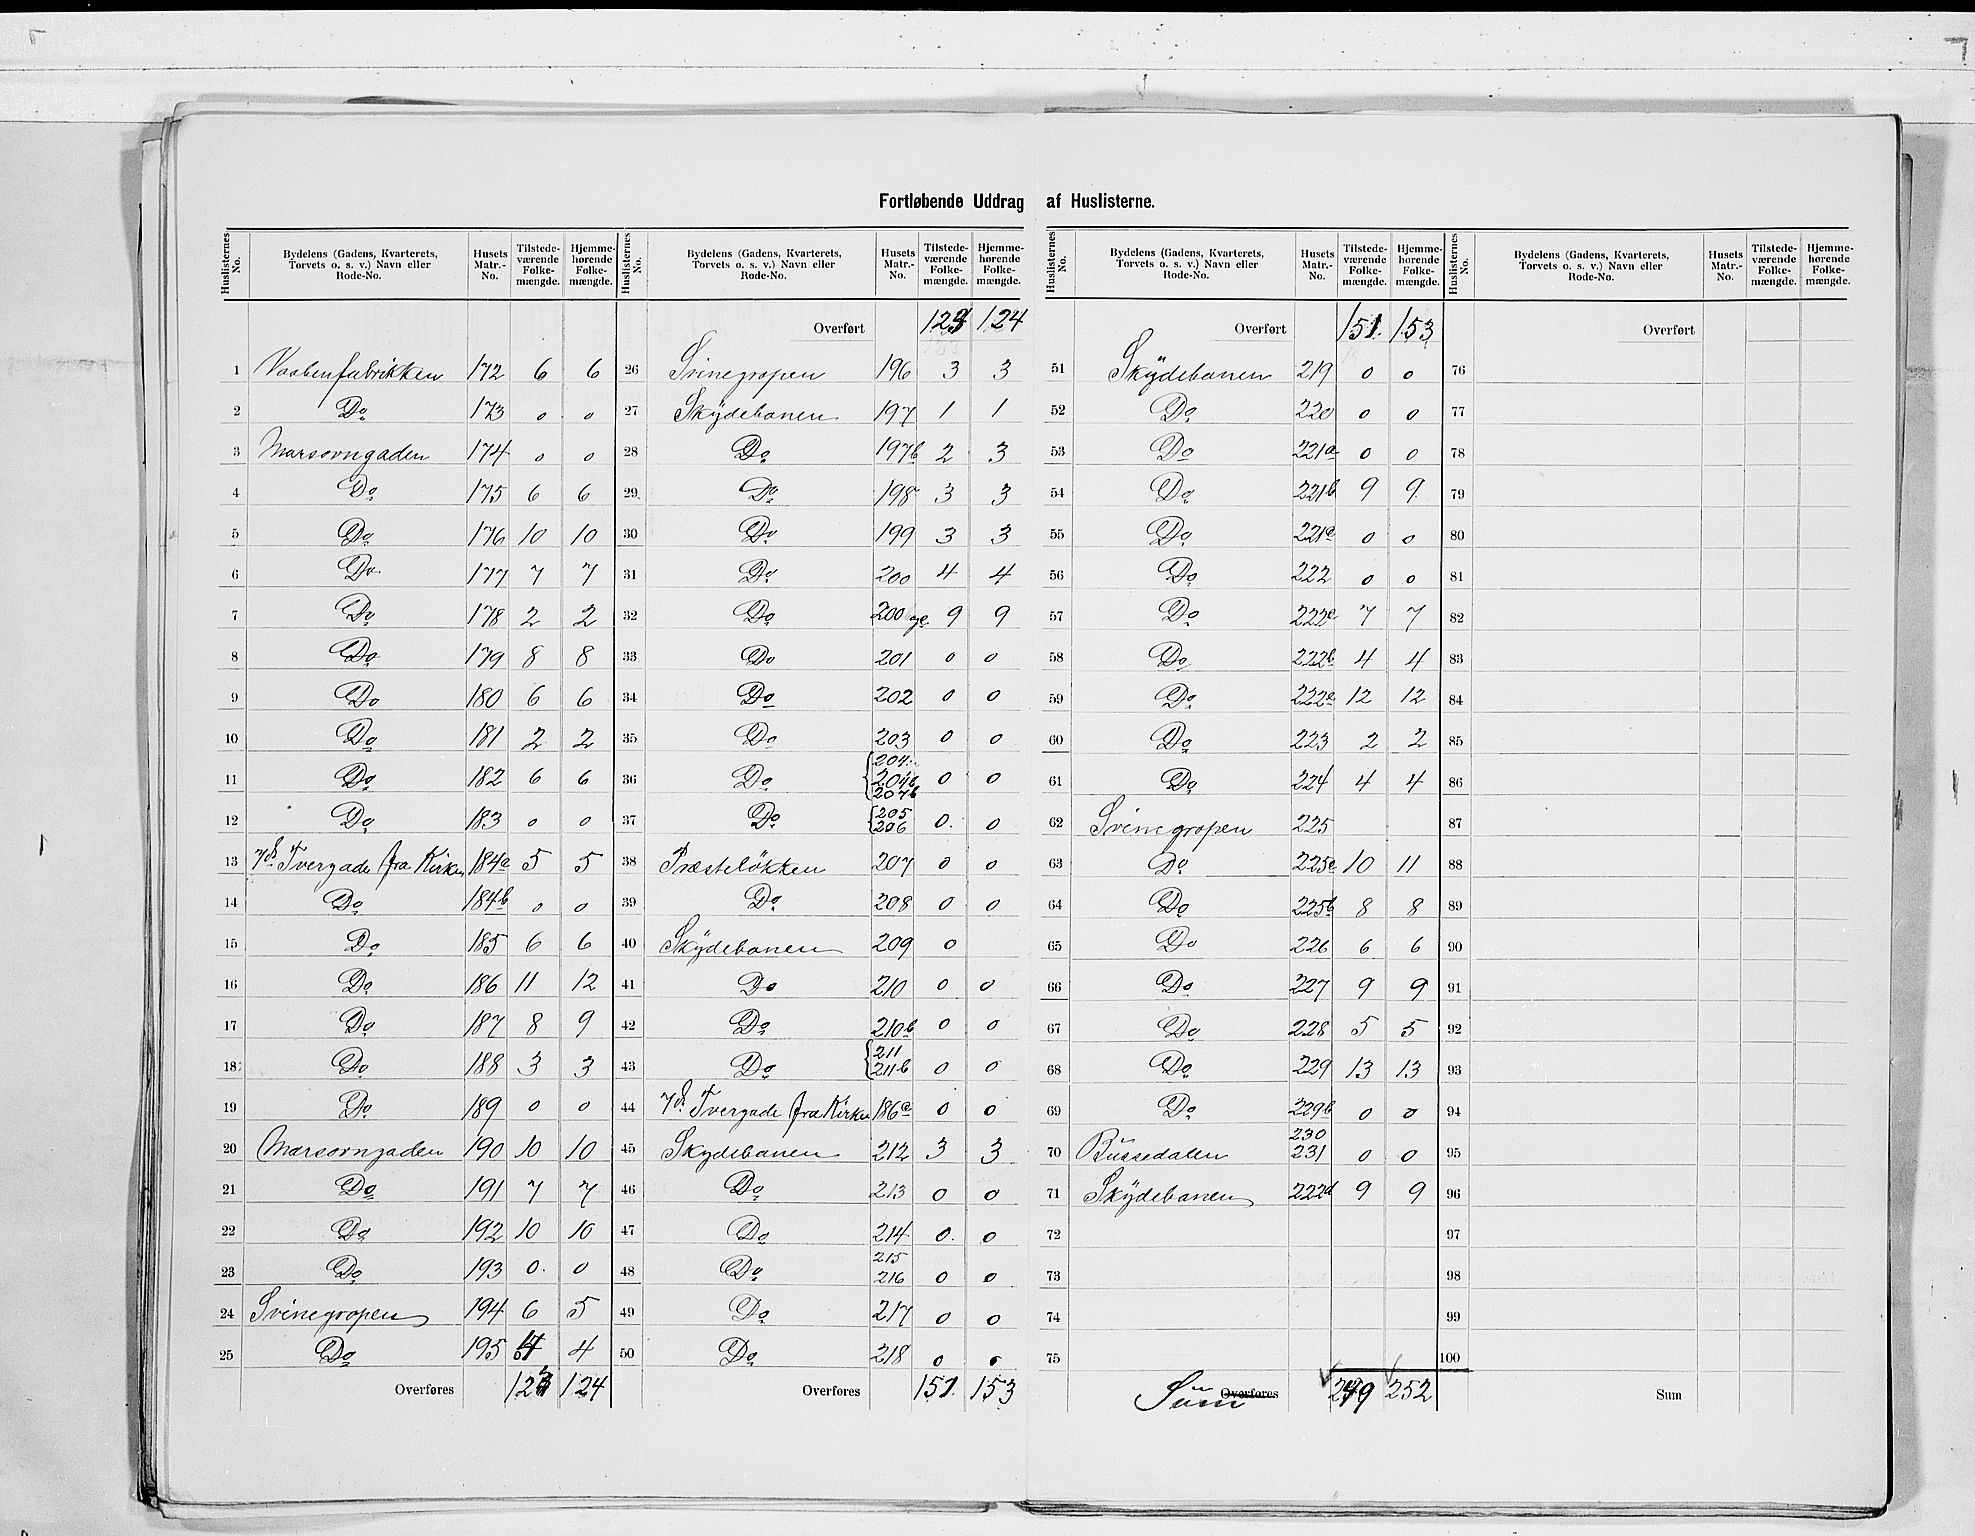 Fortløbende Uddrag af Huslisterne.
Huslisternes No. | Bydelens (Gadens, Kvarterets, Torvets o. s. v.) Navn eller Rode-No. | Husets Matr.-No. | Tilstedeværende Folkemængde. | Hjemmehørende Folkemængde.
1 Vaabenfabrikken 172 6 6
2 Do 173 0 0
3 Marsovngaden 174 0 0
4 Do 175 6 6
5 Do 176 10 10
6 Do 177 7 7
7 Do 178 2 2
8 Do 179 8 8
9 Do 180 6 6
10 Do 181 2 2
11 Do 182 6 6
12 Do 183 0 0
13 7de Tvergade fra Kirken 184a 5 5
14 Do 184b 0 0
15 Do 185 6 6
16 Do 186 11 12
17 Do 187 8 9
18 Do 188 3 3
19 Do 189 0 0
20 Marsovngaden 190 10 10
21 Do 191 7 7
22 Do 192 10 10
23 Do 193 0 0
24 Svinegropen 194 6 5
25 Do 195 4 4
Overføres 123 124
Huslisternes No. | Bydelens (Gadens, Kvarterets, Torvets o. s. v.) Navn eller Rode-No. | Husets Matr.-No. | Tilstedeværende Folkemængde. | Hjemmehørende Folkemængde.
Overført 123 124
26 Svinegropen 196 3 3
27 Skÿdebanen 197 1 1
28 Do 197b 2 3
29 Do 198 3 3
30 Do 199 3 3
31 Do 200 4 4
32 Do 200 9 9
33 Do 201 0 0
34 Do 202 0 0
35 Do 203 0 0
36 Do 204 204b 207b 0 0
37 Do 205 206 0 0
38 Præsteløkken 207 0 0
39 Do 208 0 0
40 Skÿdebanen 209 0
41 Do 210 0 0
42 Do 210b 0 0
43 Do 211 211b 0 0
44 7de Tvergade fra Kirken 186a 0 0
45 Skydebanen 212 3 3
46 Do 213 0 0
47 Do 214 0 0
48 Do 215 216 0 0
49 Do 217 0 0
50 Do 218 0 0
Overføres 151 153
Huslisternes No. | Bydelens (Gadens, Kvarterets, Torvets o. s. v.) Navn eller Rode-No. | Husets Matr.-No. | Tilstedeværende Folkemængde. | Hjemmehørende Folkemængde.
Overført 151 153
51 Skÿdebanen 219 0 0
52 Do 220 0 0
53 Do 221a 0 0
54 Do 221b 9 9
55 Do 221c 0 0
56 Do 222 0 0
57 Do 222a 7 7
58 Do 222b 4 4
59 Do 222c 12 12
60 Do 223 2 2
61 Do 224 4 4
62 Svinegropen 225
63 Do 225a 10 11
64 Do 225b 8 8
65 Do 226 6 6
66 Do 227 9 9
67 Do 228 5 5
68 Do 229 13 13
69 Do 229b 0 0
70 Bussedalen 230 231 0 0
71 Skÿdebanen 222d 9 9
72
73
74
75
Süm Overføres 249 252
Huslisternes No. | Bydelens (Gadens, Kvarterets, Torvets o. s. v.) Navn eller Rode-No. | Husets Matr.-No. | Tilstedeværende Folkemængde. | Hjemmehørende Folkemængde.
Overført
76
77
78
79
80
81
82
83
84
85
86
87
88
89
90
91
92
93
94
95
96
97
98
99
100
Sum